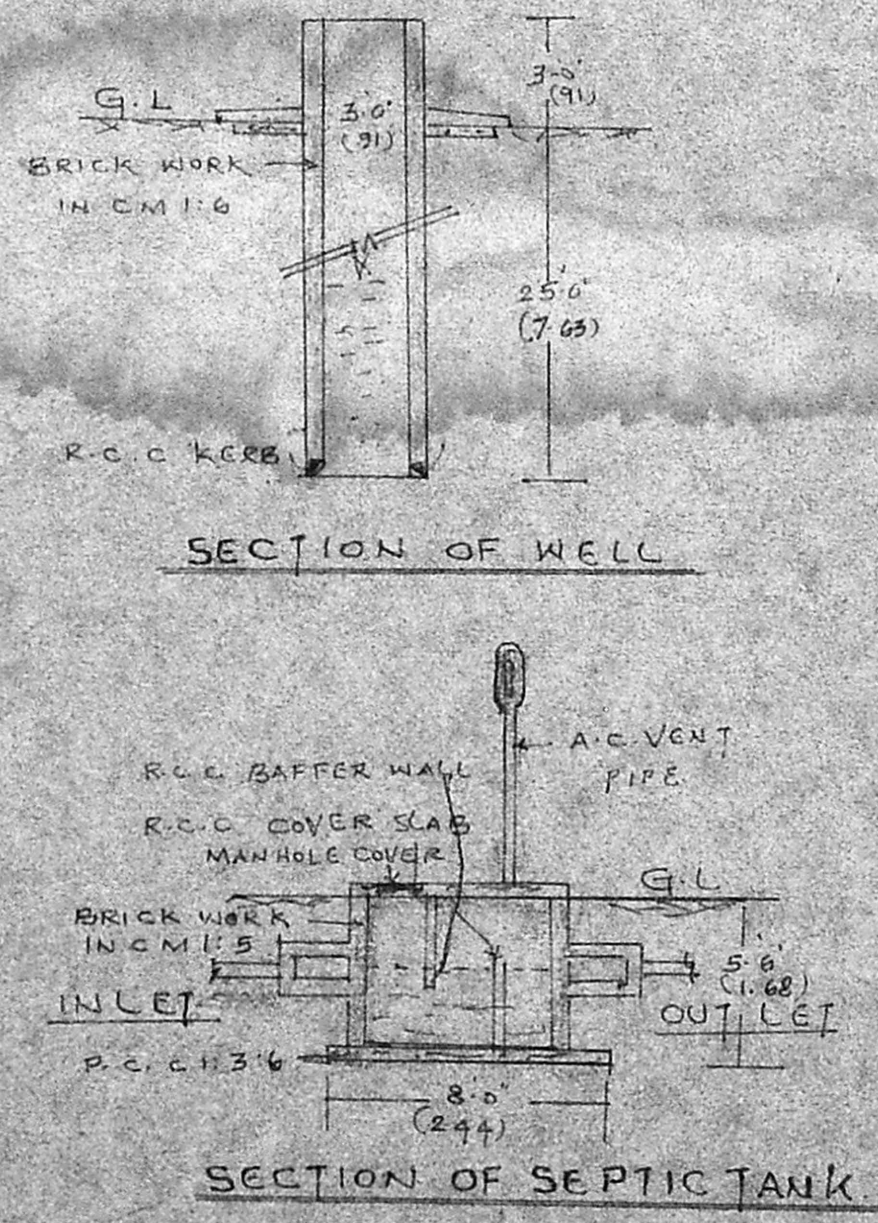 3'-0"
(91)
G.L
3'-0"
(91)
BRICK WORK
IN CM 1:6
25'-0"
(7.63)
R.C.C KERB
SECTION OF WELL
A.C. VENT
PIPE
R.C.C. BAFFER WALL
R.C.C COVER SLAB
MANHOLE COVER
G.L
BRICK WORK
IN CM 1:5
5'-6"
(1.68)
INLET
OUT LET
P.C.C 1:3:6
8'-0"
(244)
SECTION OF SEPTIC TANK